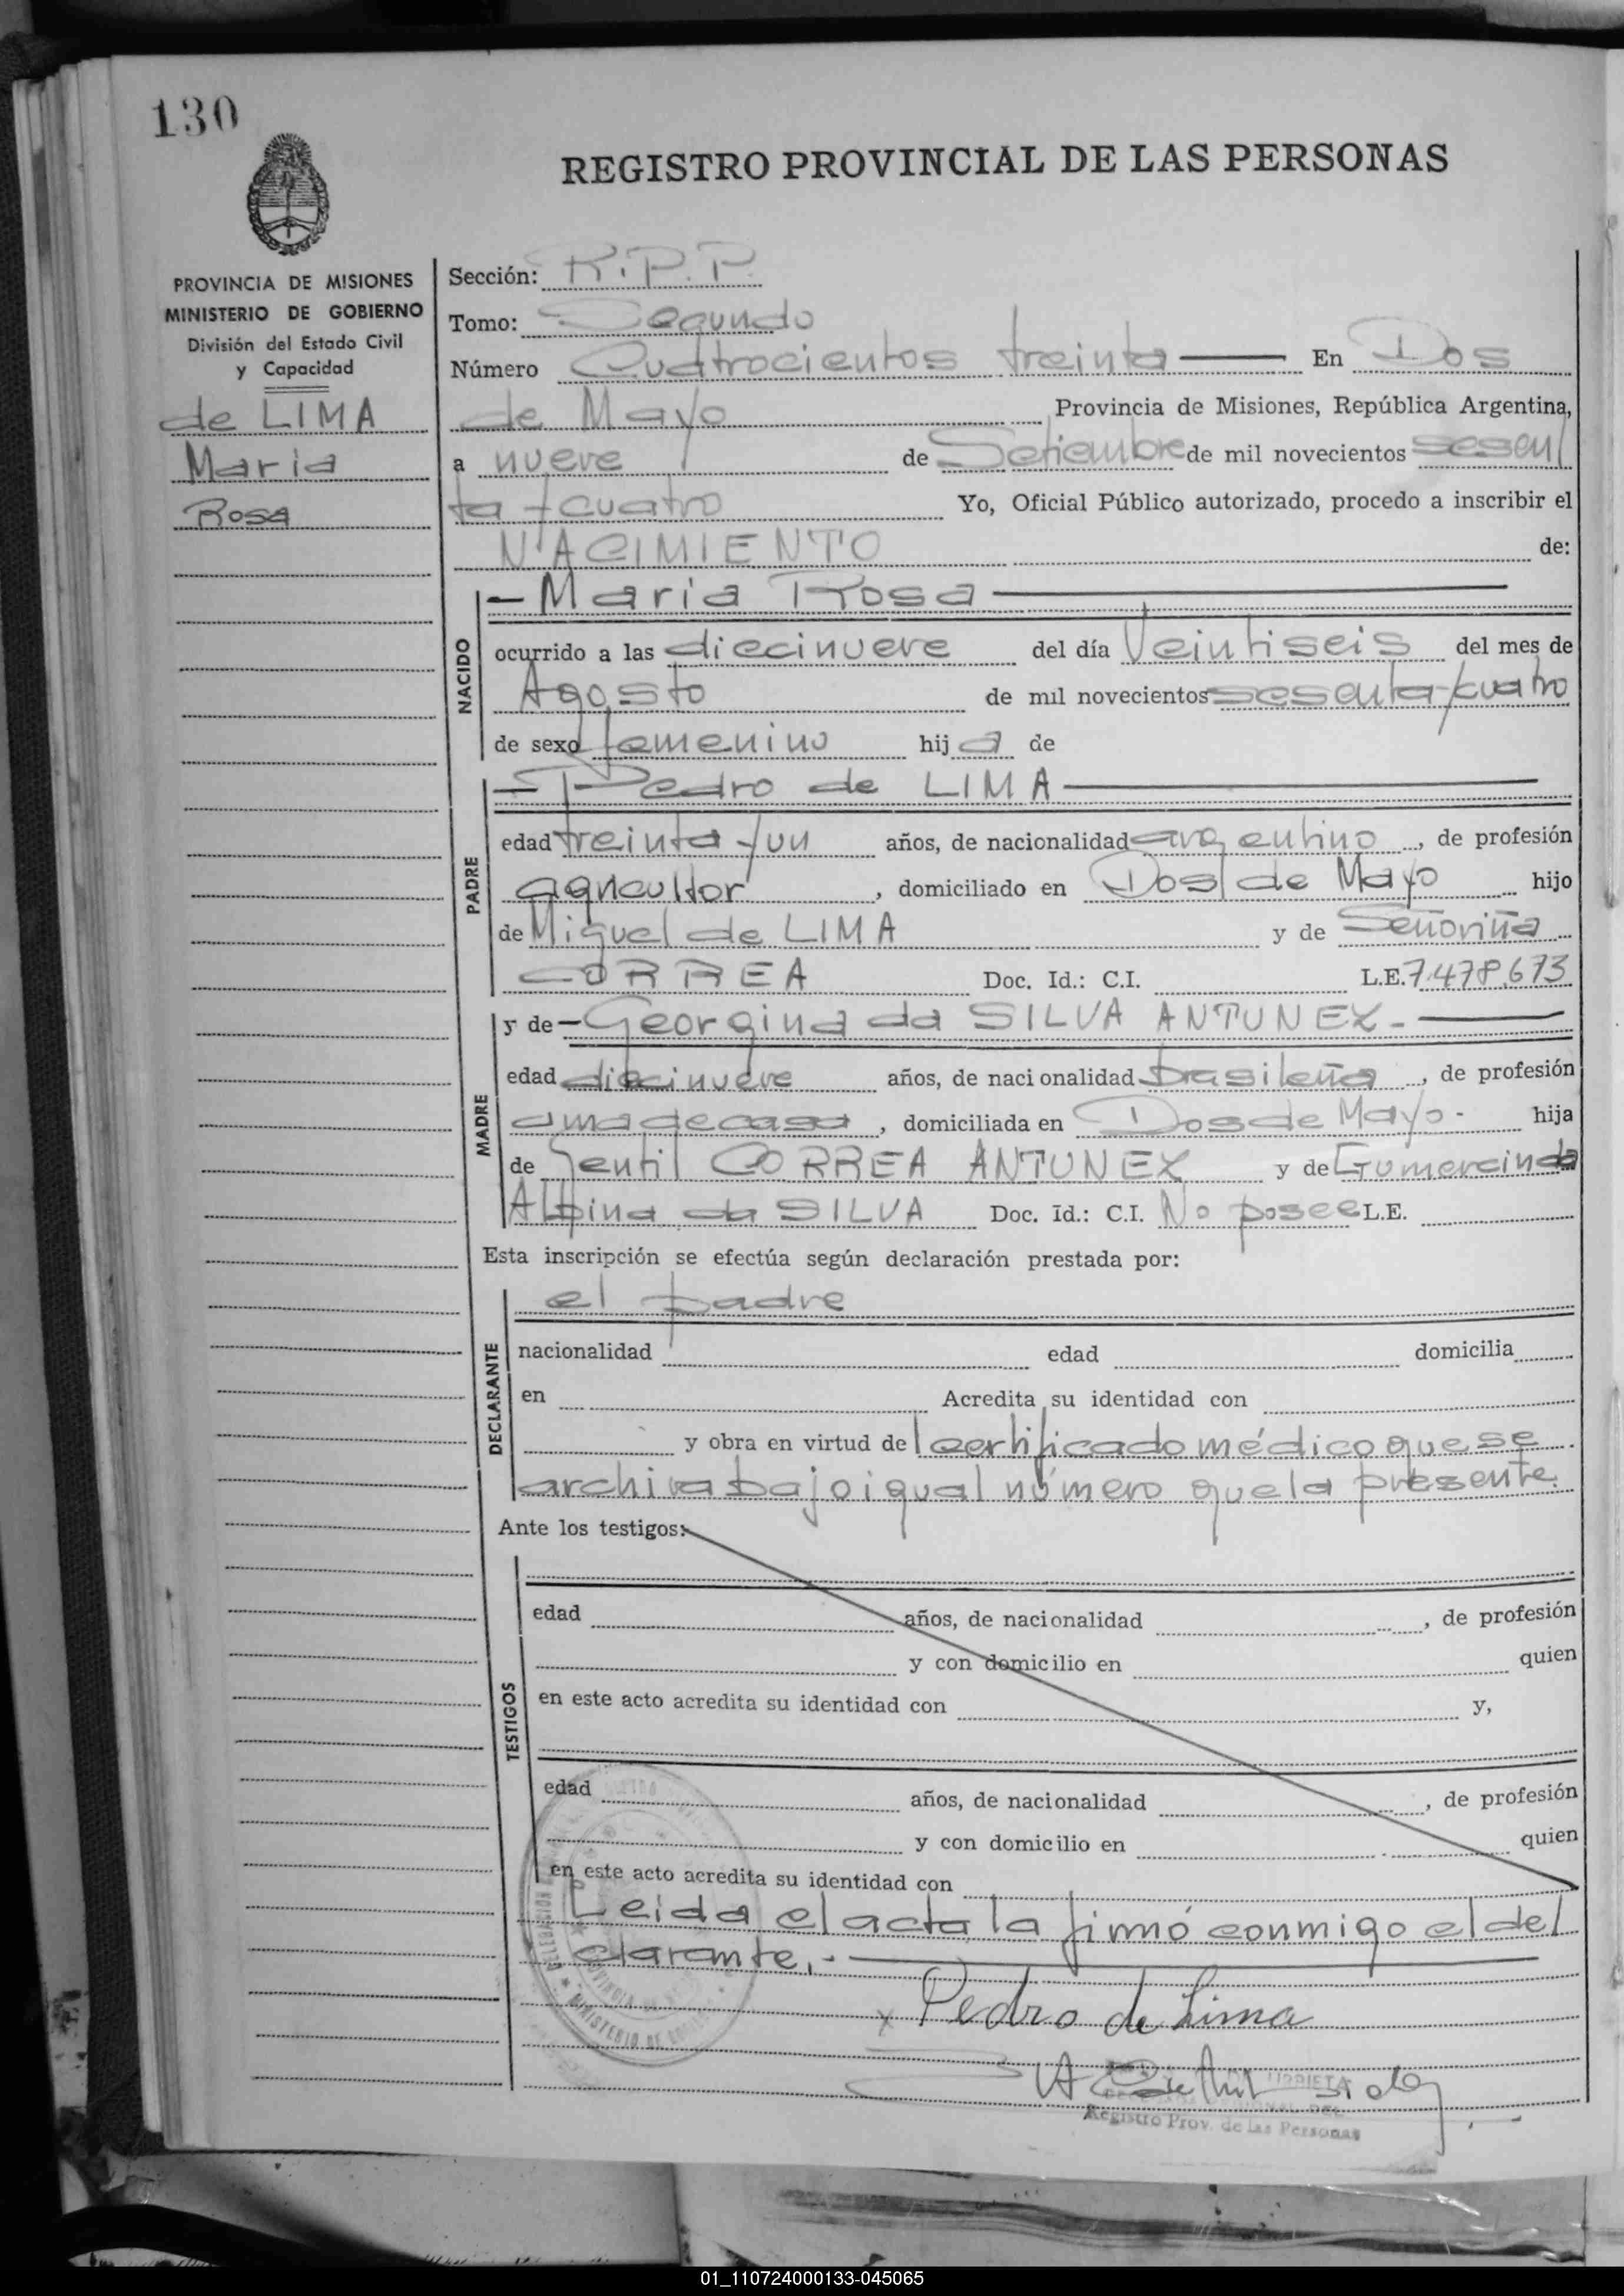 130
REGISTRO PROVINCIAL DE LAS PERSONAS
PROVINCIA DE MISIONES
MINISTERIO DE GOBIERNO
División del Estado Civil
y Capacidad
de LIMA
Maria
Rosa
Sección: R.P.P.
Tomo: Segundo
Número Cuatrocientos treinta En Dos
de Mayo Provincia de Misiones, República Argentina,
a nueve de Setiembre de mil novecientos sesen
ta y cuatro Yo, Oficial Público autorizado, procedo a inscribir el
NACIMIENTO de:
NACIDO
- Maria Rosa
ocurrido a las diecinueve del día Veintiseis del mes de
Agosto de mil novecientos sesenta y cuatro
de sexo femenino hija de
PADRE
- Pedro de LIMA
edad treinta y un años, de nacionalidad argentino, de profesión
agricultor, domiciliado en Dos de Mayo hijo
de Miguel de LIMA y de Señoriña
CORREA Doc. Id.: C.I. L.E. 7.478.673
MADRE
y de - Georgina da SILVA ANTUNEZ -
edad diecinueve años, de nacionalidad brasileña, de profesión
ama de casa, domiciliada en Dos de Mayo - hija
de Gentil CORREA ANTUNEZ y de Gumercinda
Albina da SILVA Doc. Id.: C.I. No posee L.E.
Esta inscripción se efectúa según declaración prestada por:
DECLARANTE
el padre
nacionalidad edad domicilia
en Acredita su identidad con
y obra en virtud del certificado médico que se
archiva bajo igual número que la presente.
Ante los testigos:
TESTIGOS
edad años, de nacionalidad , de profesión
y con domicilio en quien
en este acto acredita su identidad con y,
edad años, de nacionalidad , de profesión
y con domicilio en quien
en este acto acredita su identidad con
Leida el acta, la firmó conmigo el de
clarante.-
x Pedro de Lima
URRIETA
Registro Prov. de las Personas
PROVINCIA DE
MINISTERIO DE
01_110724000133-045065